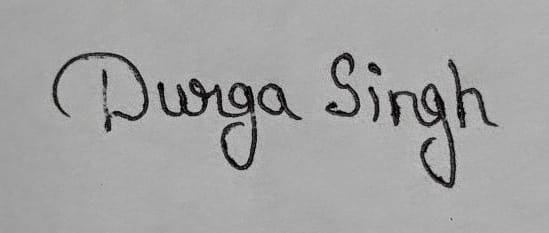 Durga Singh